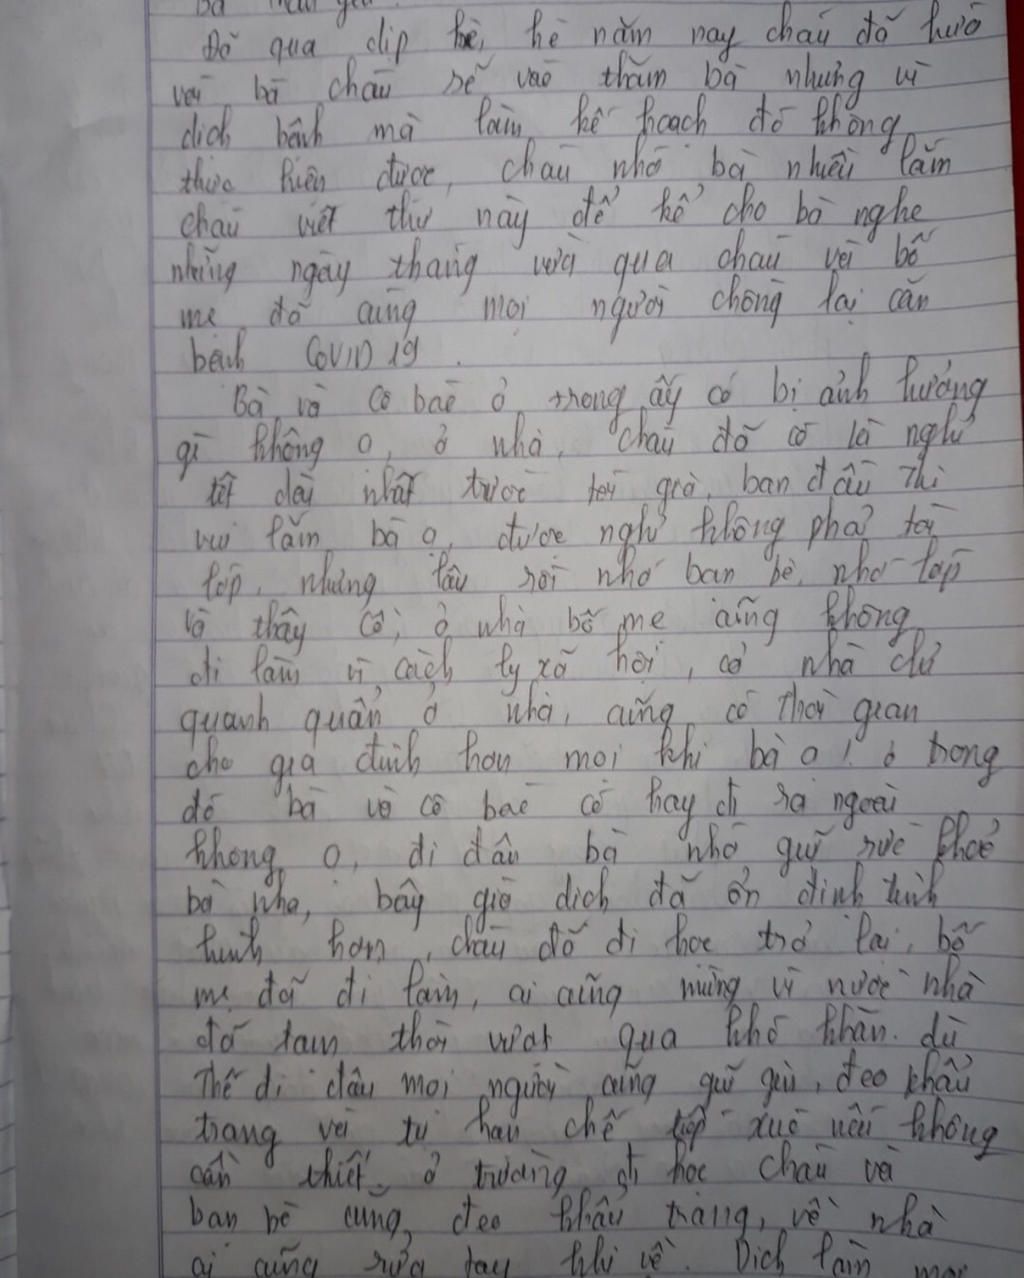 Bà mến yêu.
Đã qua dịp hè, hè năm nay cháu đã hứa
với bà cháu sẽ vào thăm bà nhưng vì
dịch bệnh mà làm kế hoạch đó không
thực hiện được, cháu nhớ bà nhiều lắm
cháu viết thư này để kể cho bà nghe
những ngày tháng vừa qua cháu với bố
mẹ đã cùng mọi người chống lại căn
bệnh COVID 19.
Bà và cô bác ở trong ấy có bị ảnh hưởng
gì không ạ, ở nhà, cháu đã có là nghỉ
tết dài nhất trước tới giờ, ban đầu thì
vui lắm bà ạ, được nghỉ không phải tới
lớp, nhưng lâu rồi nhớ bạn bè, nhớ lớp
và thầy cô, ở nhà bố mẹ cũng không
đi làm vì cách ly xã hội, cả nhà chỉ
quanh quẩn ở nhà, cũng có thời gian
cho gia đình hơn mọi khi bà ạ! ở trong
đó bà và cô bác có hay đi ra ngoài
không ạ, đi đâu bà nhớ giữ sức khoẻ
bà nha, bây giờ dịch đã ổn định tình
hình hơn, cháu đã đi học trở lại, bố
mẹ đã đi làm, ai cũng mừng vì nước nhà
đã tạm thời vượt qua khó khăn. dù
thế đi đâu mọi người cũng giữ gìn, đeo khẩu
trang và tự hạn chế tiếp xúc nếu không
cần thiết, ở trường đi học cháu và
bạn bè cùng đeo khẩu trang, về nhà
ai cũng rửa tay khi về. Dịch làm mọi